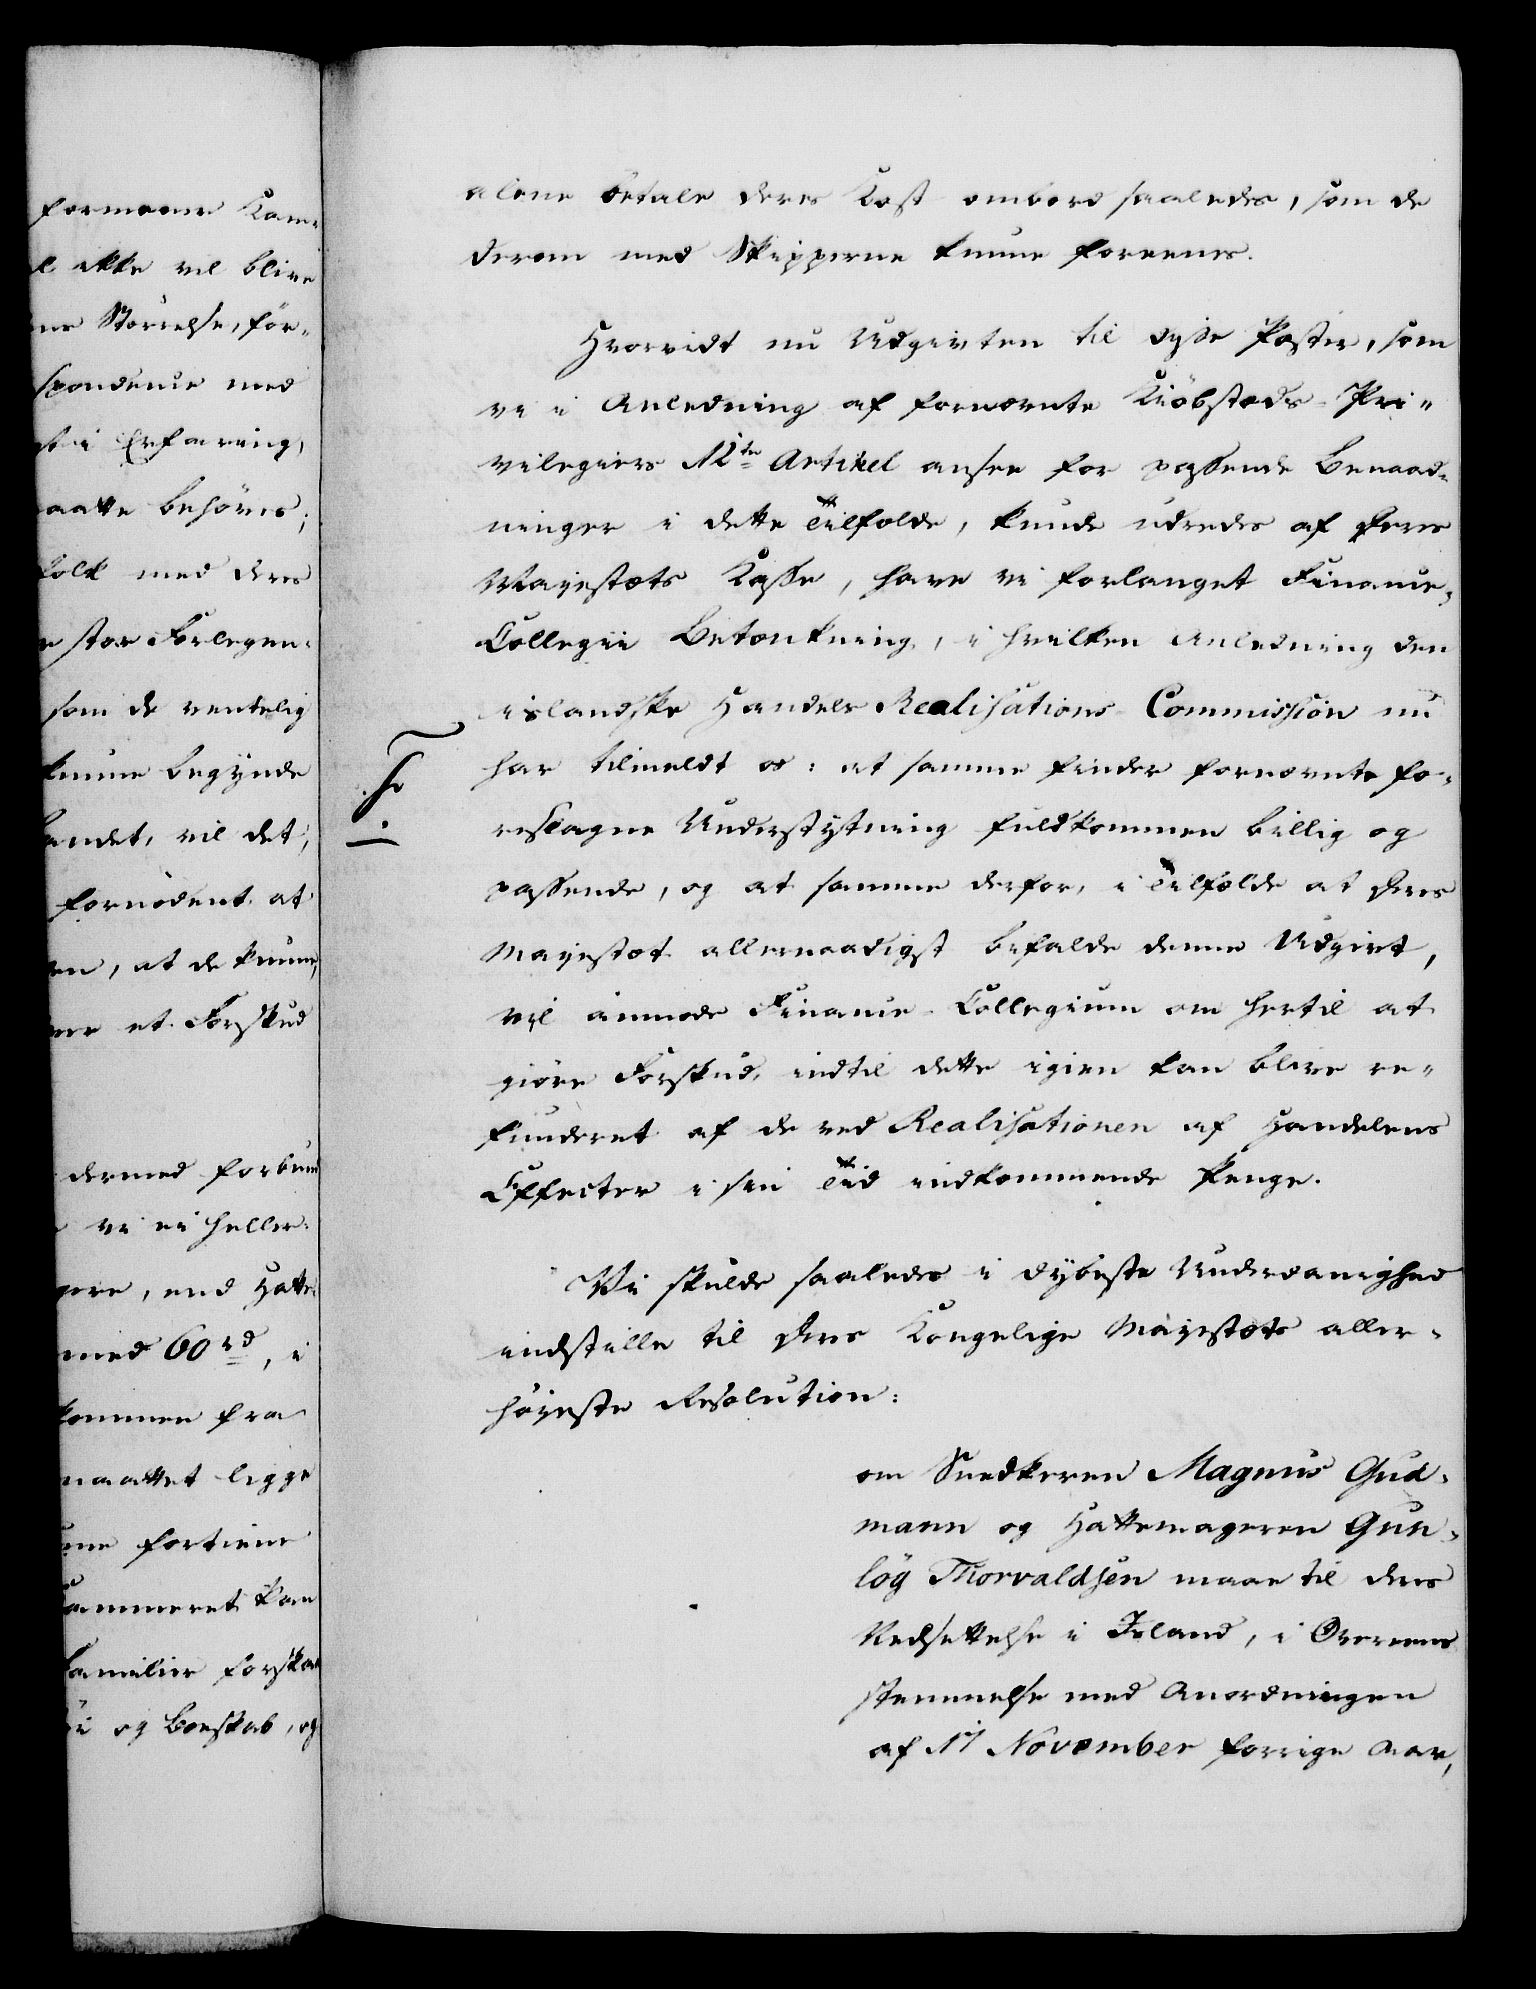 formeener Kam¬
l ikke vil blive
Störrelse, for¬
spondence med
i Erfaring,
maatte behöves;
folk med deres
stor Forlegen¬
som de ventelig
kunne begynde
Landet, vil det,
fornödent at
, at de kunne
et Forskud
dermed forbun
vi ei heller
, end Hatte
med 60 rd, i
kommen fra
maattet ligge
fortiene
Kammeret kan
Familier forskaa
og Boeskab, og
alene betale deres Kost ombord saaledes, som de
derom med Skipperne kunne foreenes.
Hvorvidt nu Udgivten til disse Poster, som
vi i Anledning af fornævnte Kiöbstæds-Pri¬
vilegiers 12te Artikel ansee for passende Benaad¬
ninger i dette Tilfælde, kunde udredes af Deres
Majestæts Kasse, have vi forlanget Finance¬
Collegii Betænkning, i hvilken Anledning den
islandske Handels Realisations-Commission nu
har tilmeldt os: at samme finder fornævnte fo¬
reslagne Understytning fuldkommen billig og
passende, og at samme derfor, i Tilfælde at Deres
Majestæt allernaadigst befalede denne Udgivt,
vil anmode Finance-Collegium om hertil at
giöre Forskud, indtil dette igien kan blive re¬
funderet af de ved Realisationen af Handelens
Effecter i sin Tid indkommende Penge.
Vi skulde saaledes i dybeste Underdanighed
indstille til Deres Kongelige Majestæts aller¬
höieste Resolution:
om Snedkeren Magnus Gud¬
mann og Hattemageren Gun¬
lög Thorvaldsen maae til deres
Nedsettelse i Island, i Overeens
stemmelse med Anordningen
af 17 November forrige Aar,